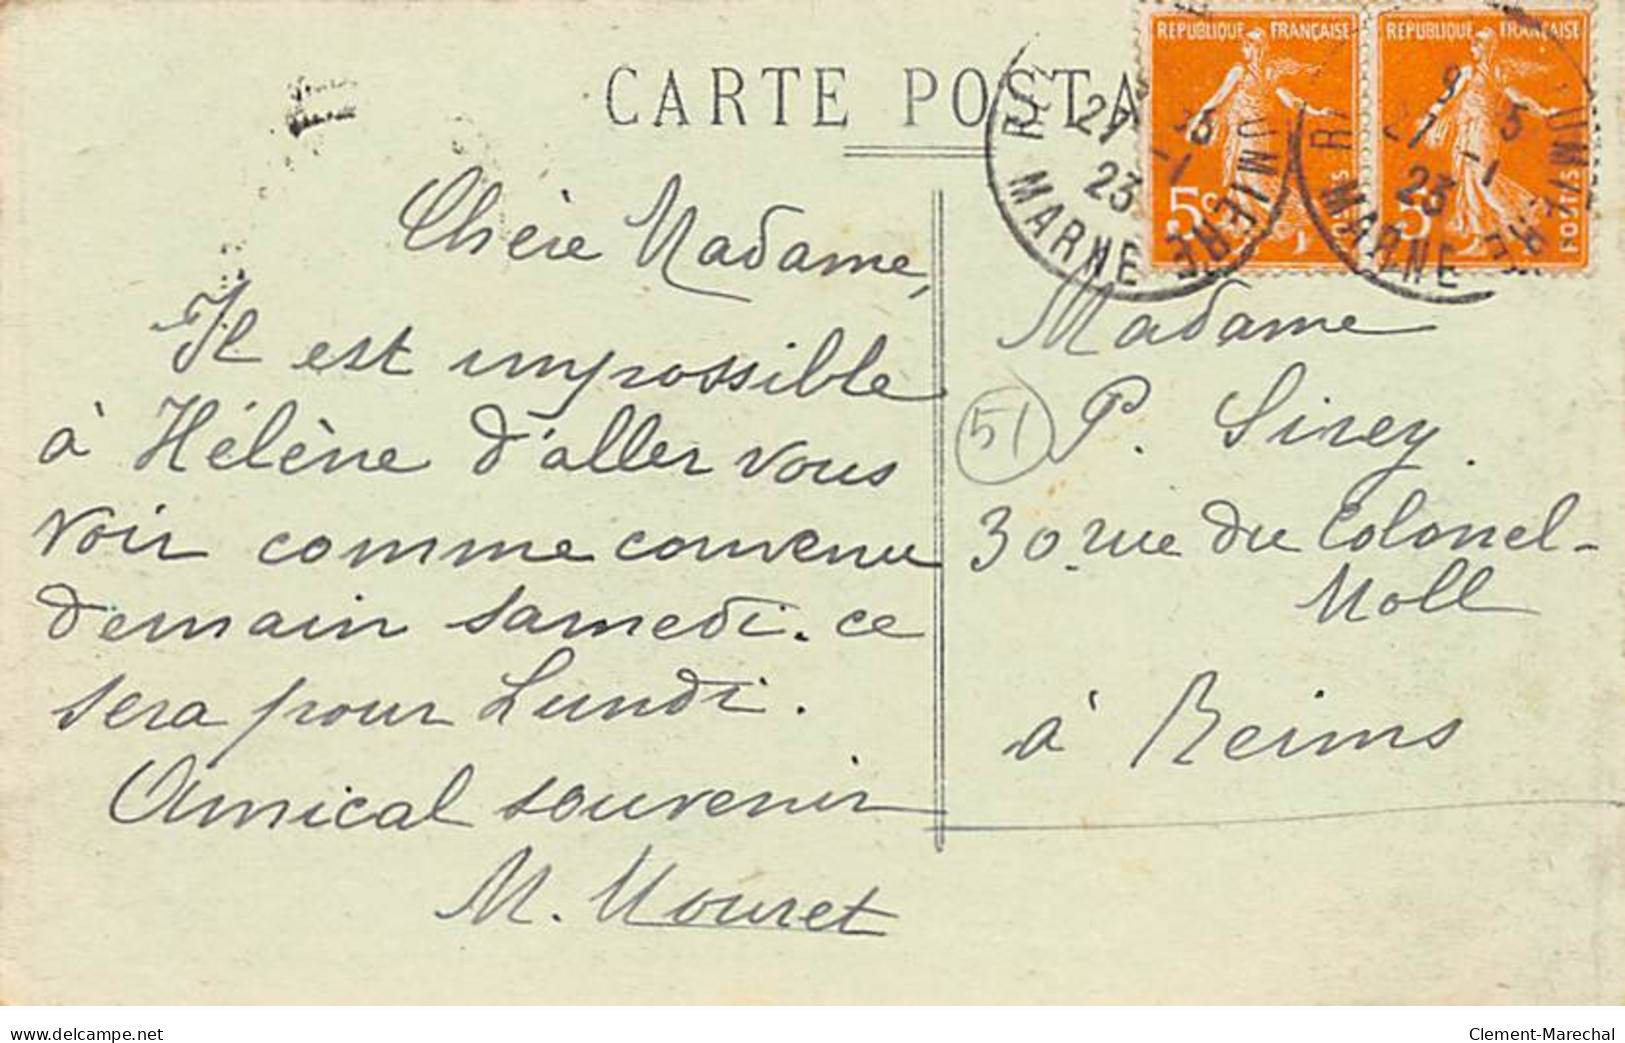 CARTE POSTA
REPUBLIQUE FRANÇAISE
REPUBLIQUE FRANÇAISE
5c
5
POSTES
MARNE
23
MARNE
23
Chère Madame,
Il est impossible
à Hélène d'aller vous
voir comme convenu
demain samedi. ce
sera pour Lundi.
Amical souvenir
M. Mouret
Madame
51
P. Sirey.
30 rue du Colonel-
Moll
à Reims
delcampe.net
Clement-Marechal